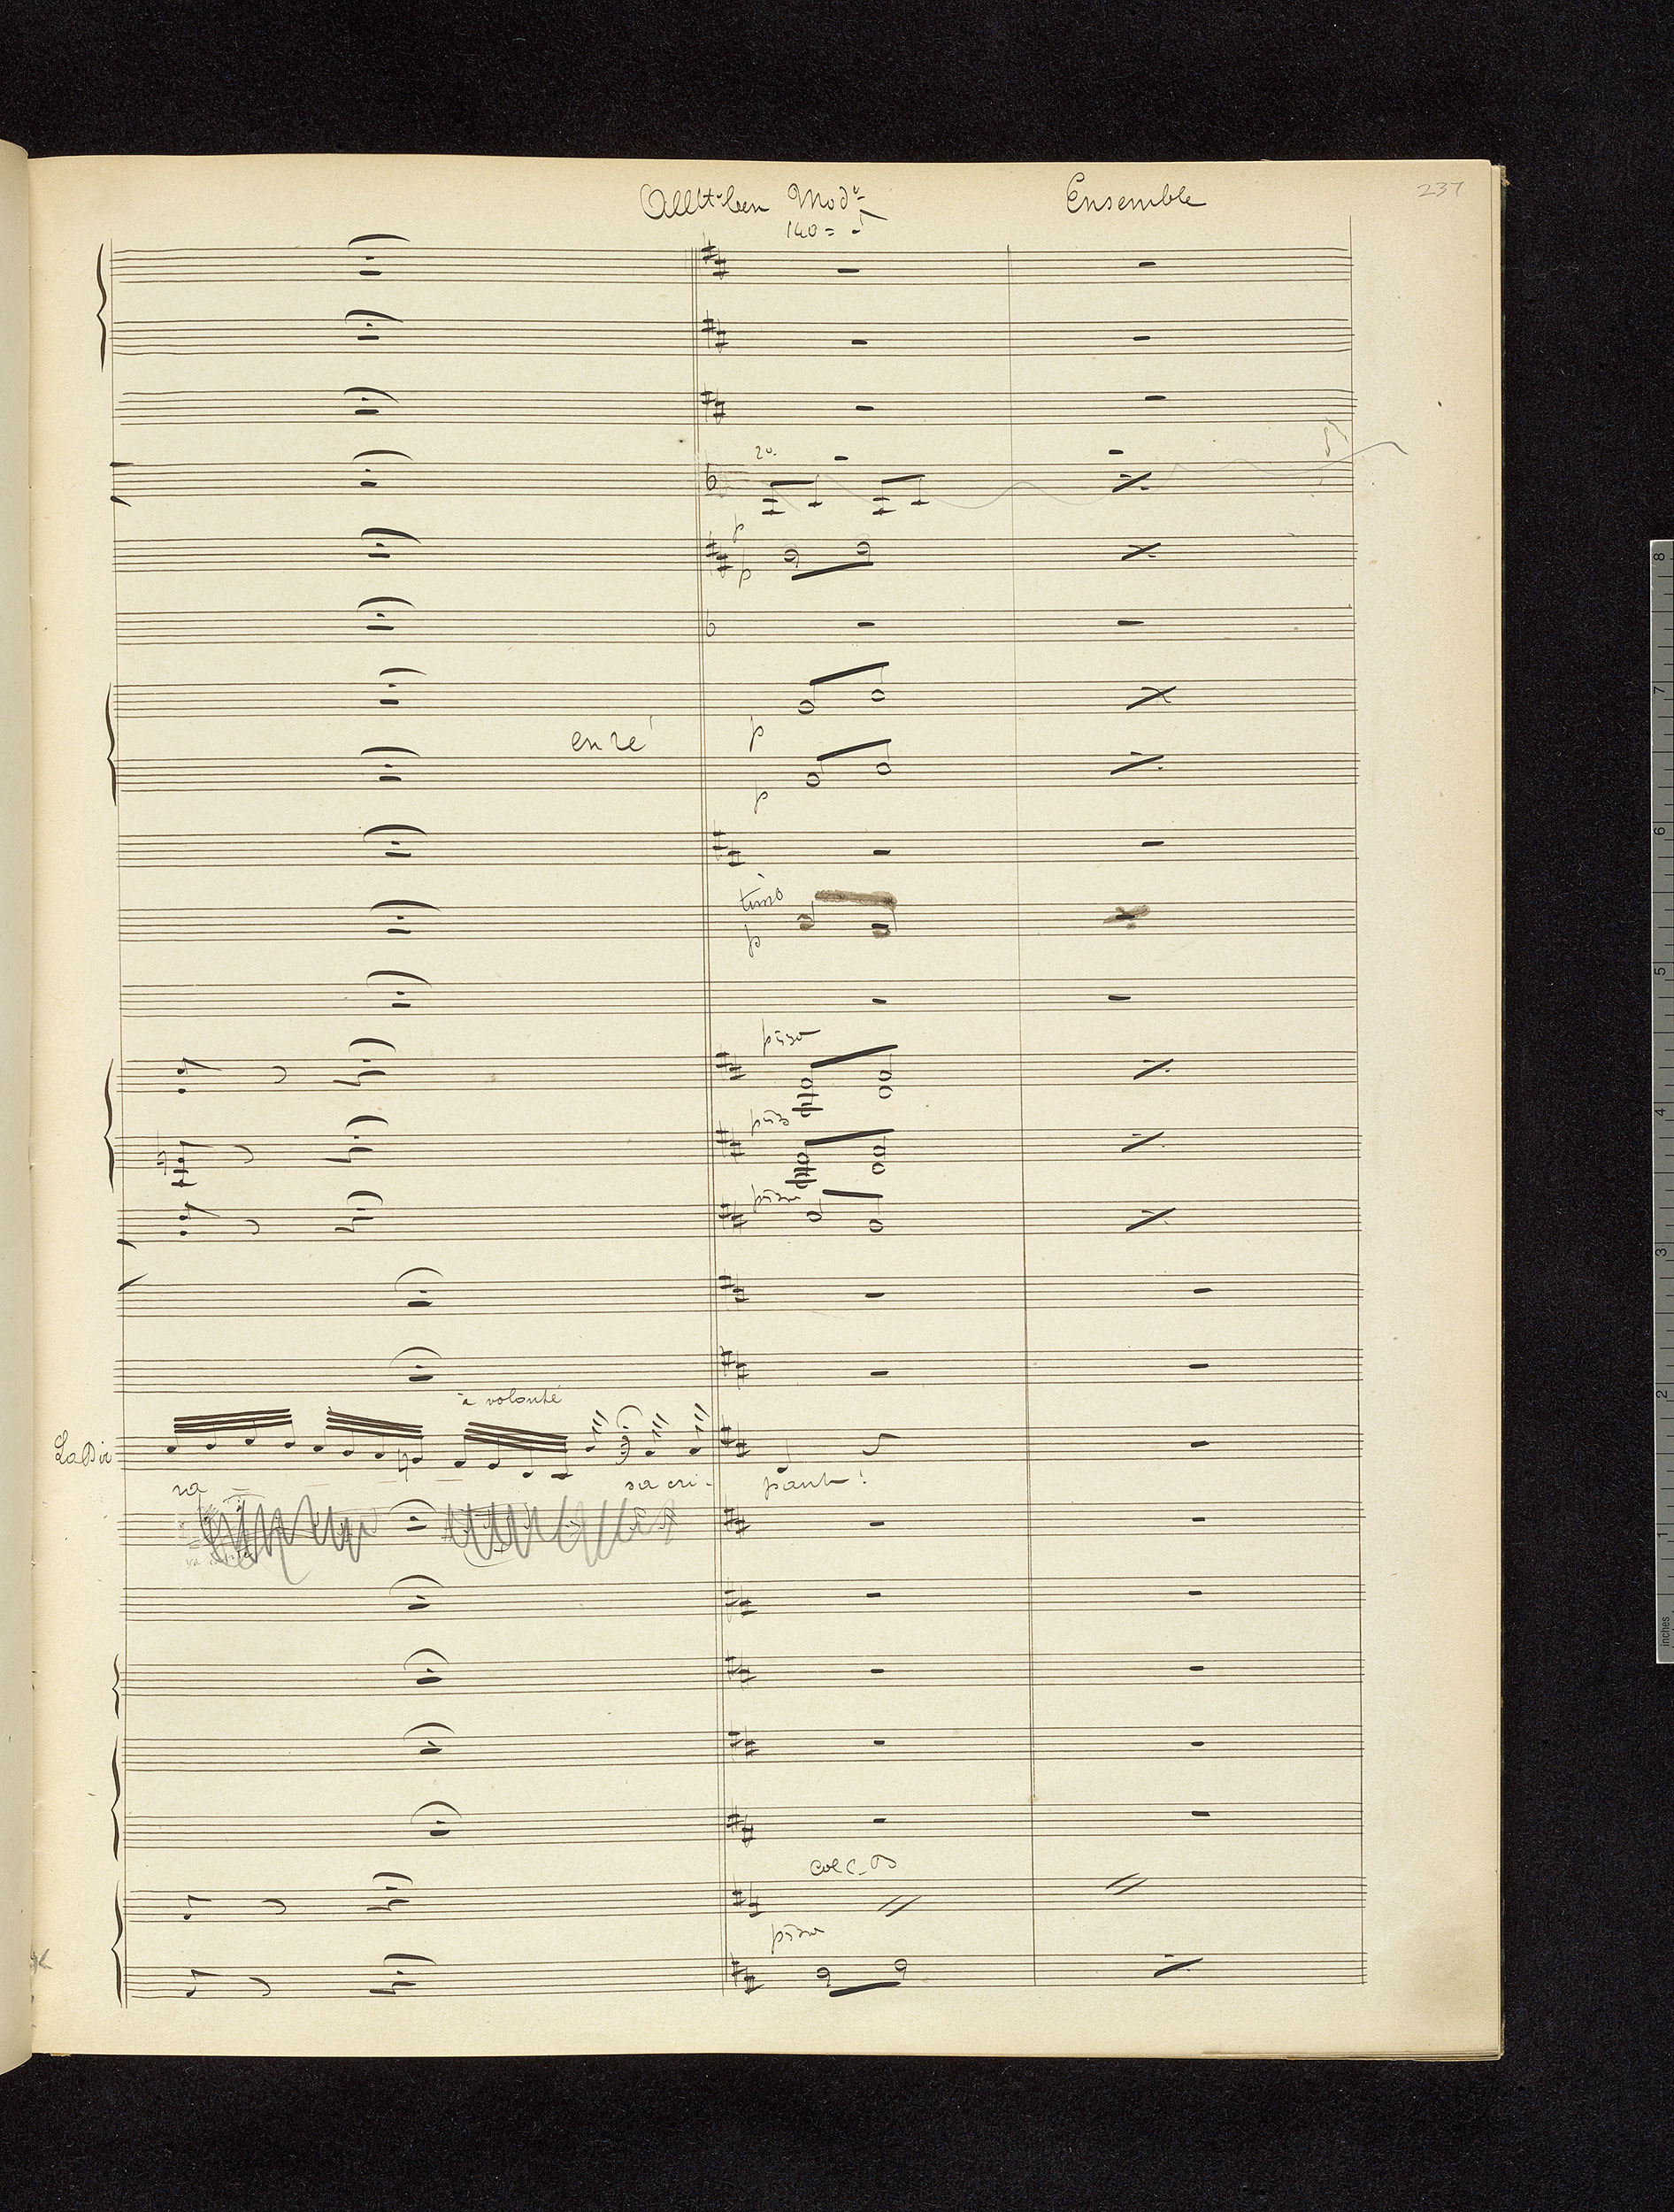 Alltto ben Modo Ensemble 237
140 =
20.
p
p
en ré
p
p
timb
p
à volonté
La Dir
ra sa cri- pant!
col C-B
8
7
6
5
4
3
2
1
inches